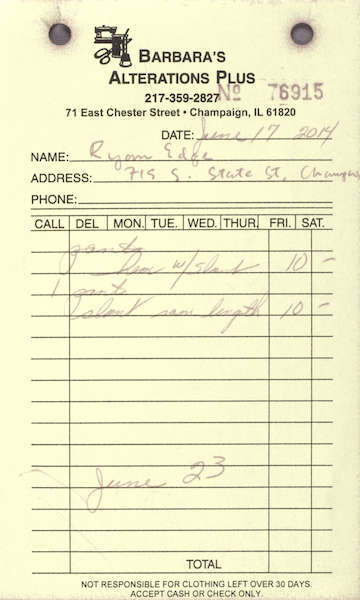 BARBARA'S
ALTERATIONS PLUS
217-359-2827 No 76915
71 East Chester Street • Champaign, IL 61820
DATE: June 17 2014
NAME: Ryan Edge
ADDRESS: 715 S. State St, Champaign
PHONE:
CALL DEL MON. TUE. WED. THUR. FRI. SAT.
pants
w/slant 10 -
1 pants
slant same length 10 -
June 23
TOTAL
NOT RESPONSIBLE FOR CLOTHING LEFT OVER 30 DAYS.
ACCEPT CASH OR CHECK ONLY.